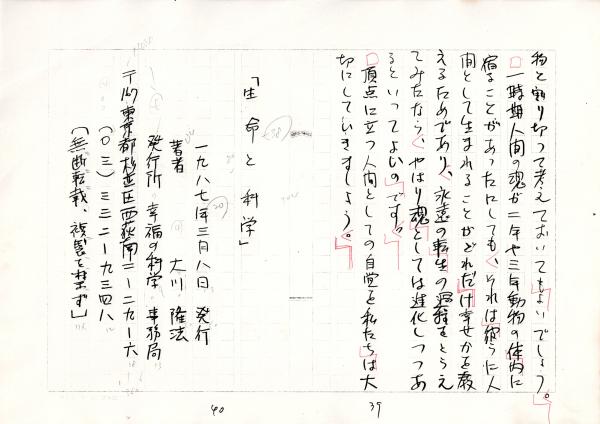 物と割り切って考えておいてもよいでしょう。
一時期人間の魂が二年や三年動物の体内に
宿ることがあったにしても、それは宿うに人
間として生まれることがどれだけ幸せかを教
えるためであり、永遠の転生の過程をとうえ
てみたなら、やはり魂としては進化しつつあ
るといってよいのです。
頂点に立つ人間としての自覚を私たちは大
切にしていきましょう。
39
「生命と科学」
一九八七年三月八日 発行
著者 大川 隆法
発行所 幸福の科学 事務局
〒167 東京都杉並区西荻南二ー二九ー六
(〇三)三三二ー九三四八
「無断転載、複製を禁ず」
40